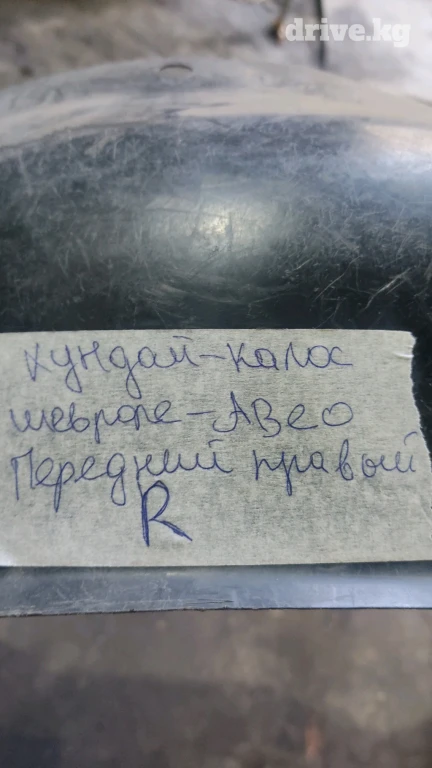 drive.kg
Хундай-Калос
шевроле-Авео
Передний правый
R